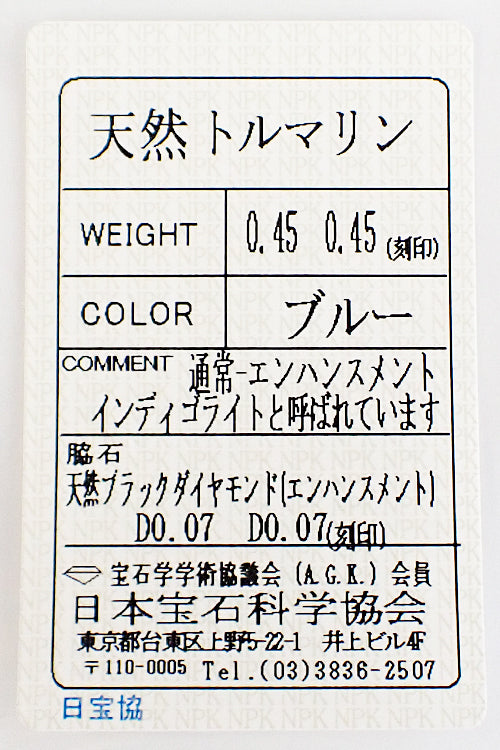 天然トルマリン
WEIGHT 0.45 0.45 (刻印)
COLOR ブルー
COMMENT 通常-エンハンスメント
インディゴライトと呼ばれています
脇石
天然ブラックダイヤモンド(エンハンスメント)
D0.07 D0.07(刻印)
宝石学学術協議会 (A.G.K.) 会員
日本宝石科学協会
東京都台東区上野5-22-1 井上ビル4F
〒110-0005 Tel.(03)3836-2507
日宝協